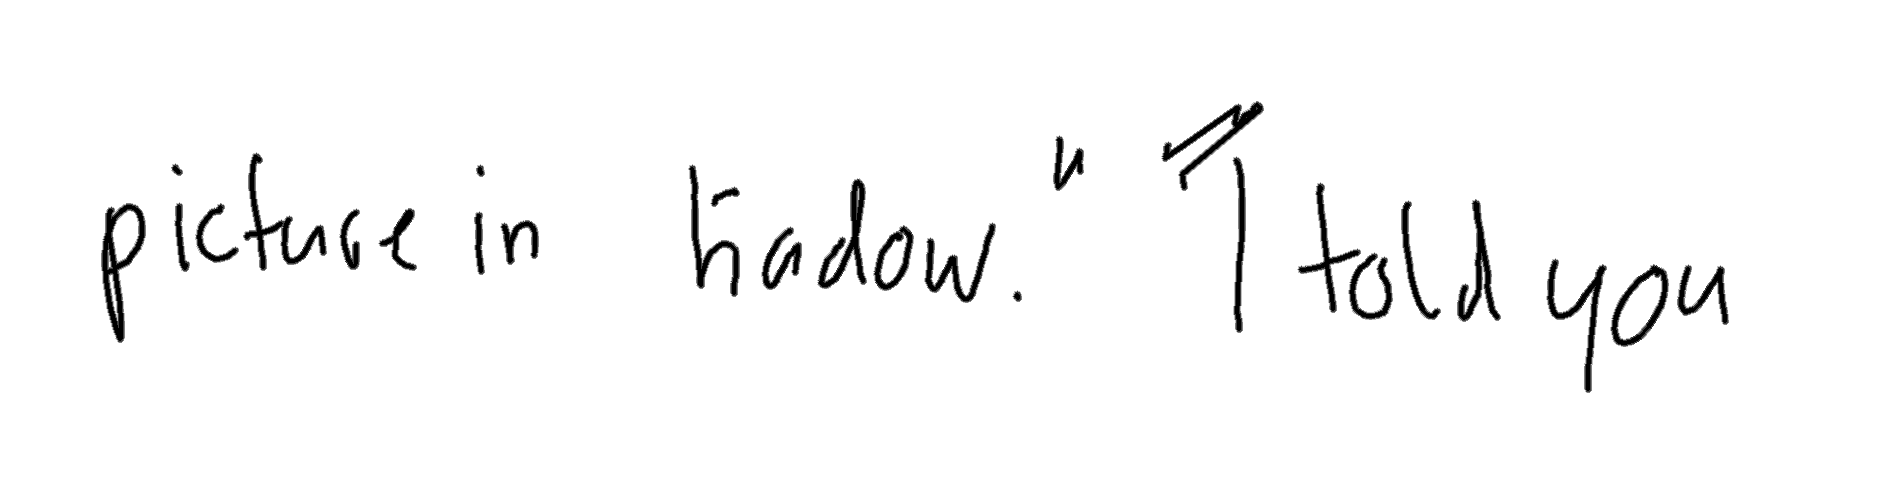 picture in hadow." "I told you